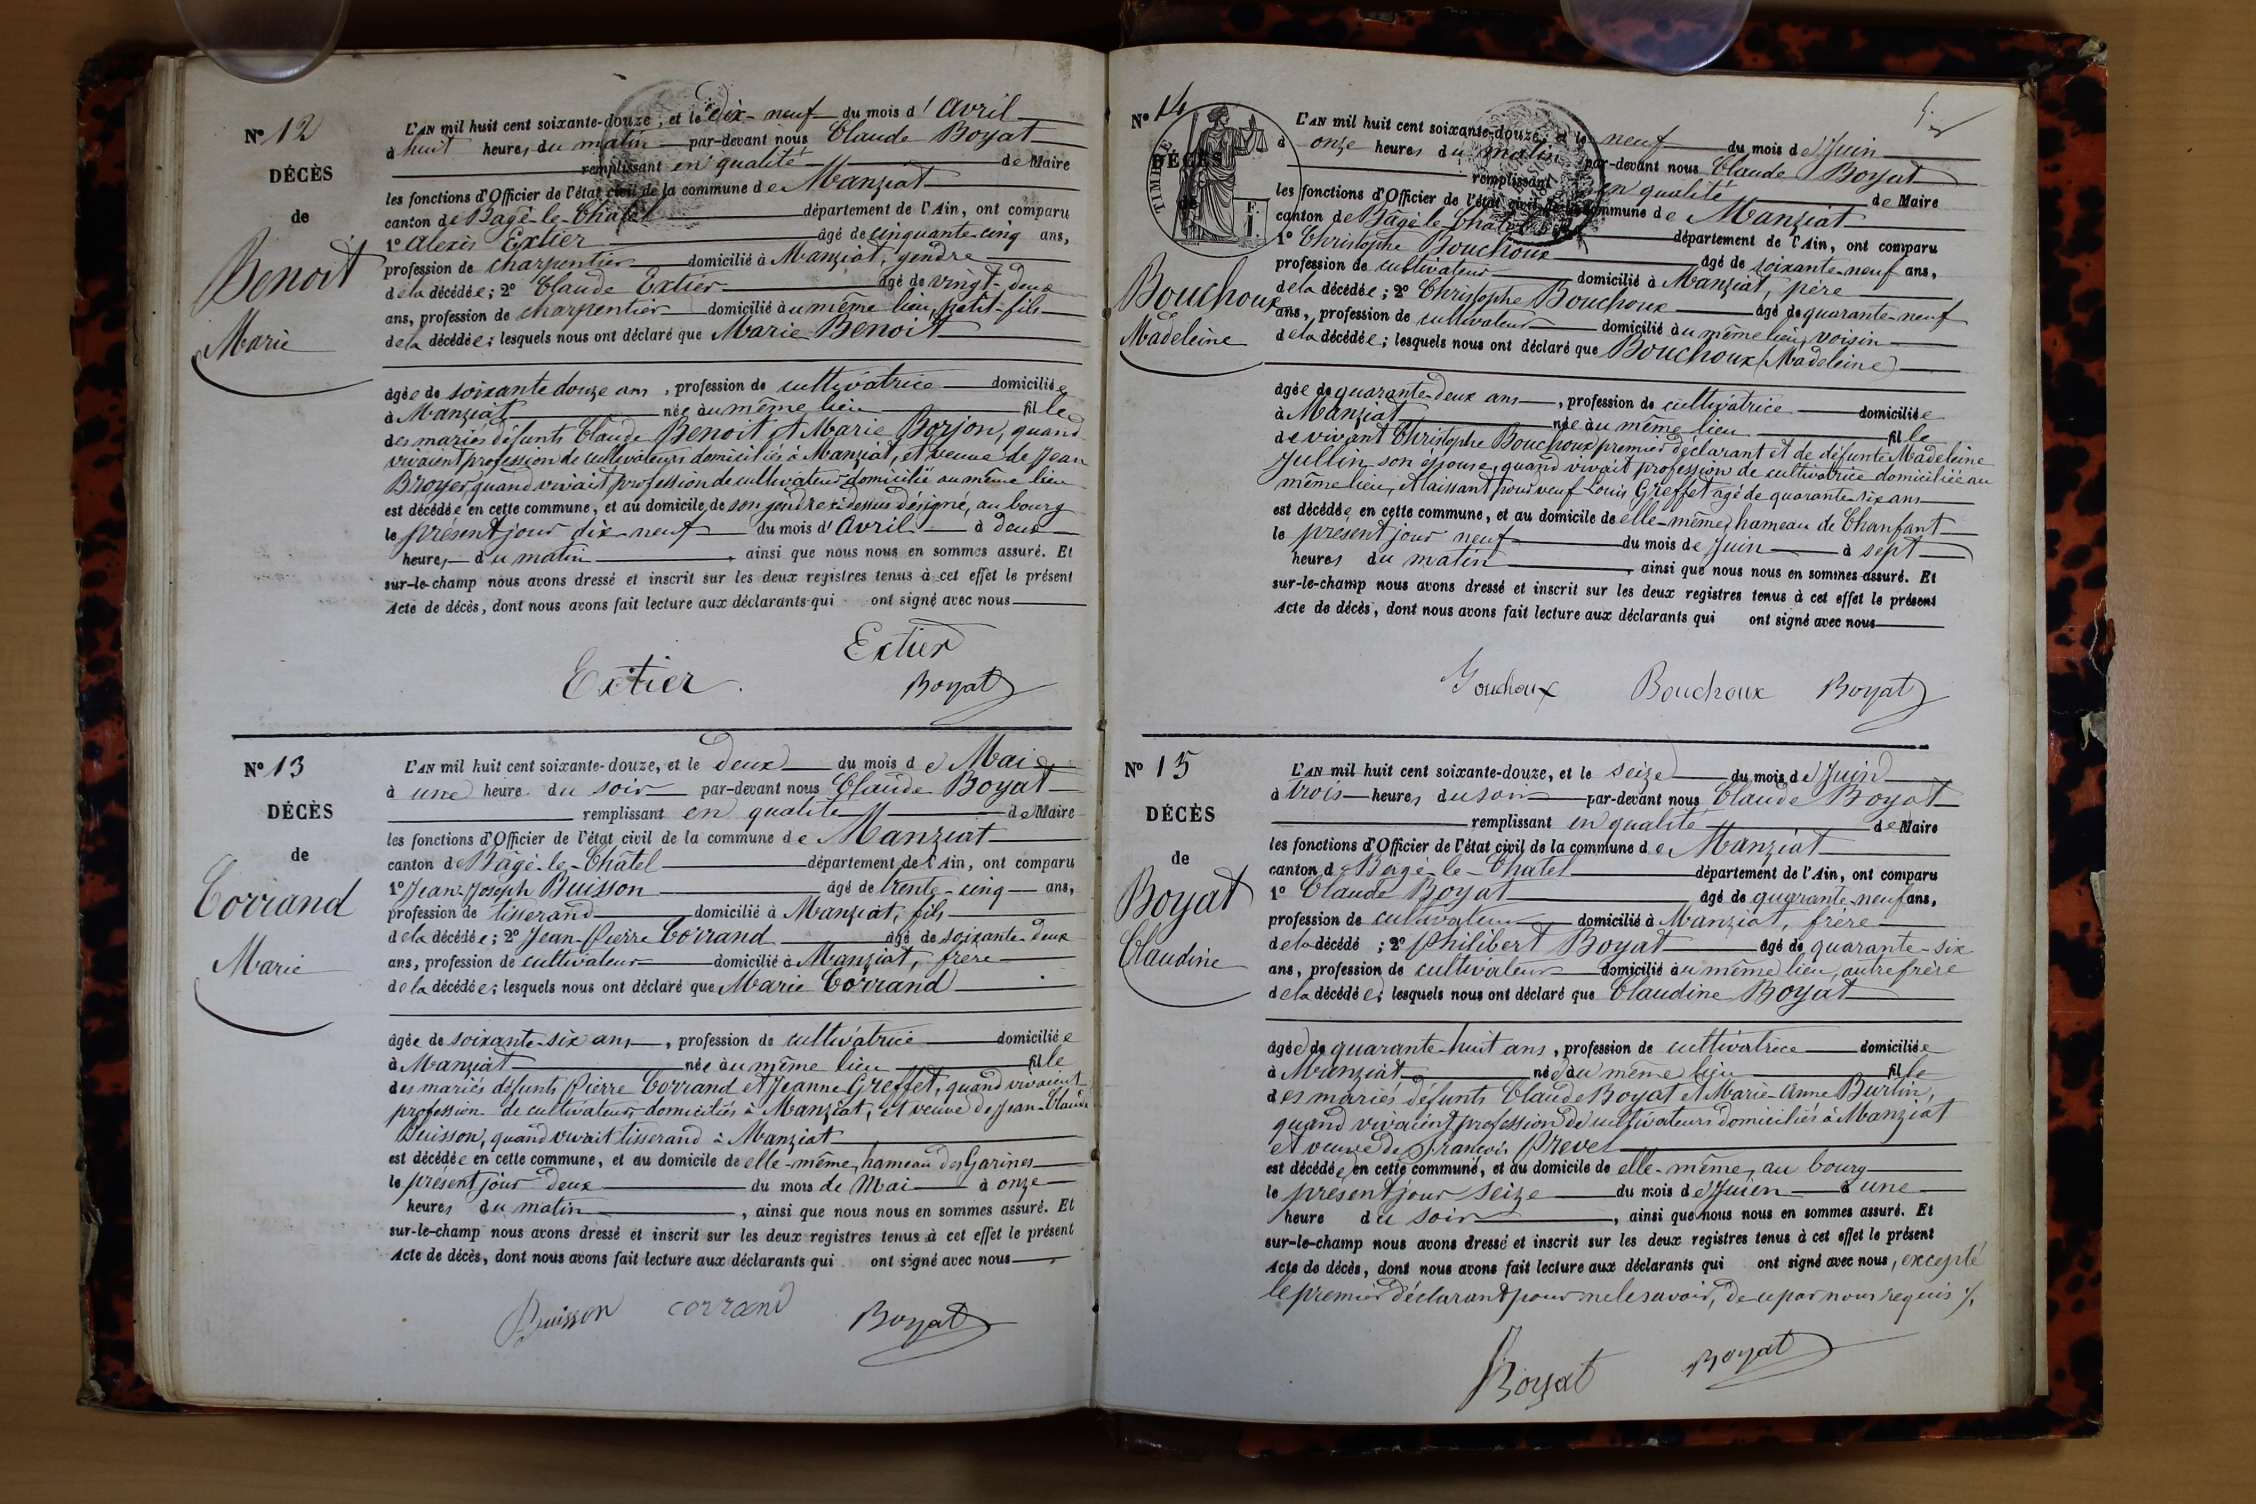 N° 12
DÉCÈS
de
Benoit
Marie
L'AN mil huit cent soixante-douze, et le dix-neuf du mois d'Avril
à huit heures du matin par-devant nous Claude Boyat
remplissant en qualité de Maire
les fonctions d'Officier de l'état civil de la commune de Manziat
canton de Bâgé-le-Châtel département de l'Ain, ont comparu
1° Alexis Extier âgé de cinquante-cinq ans,
profession de charpentier domicilié à Manziat, gendre
de la décédée; 2° Claude Extier âgé de vingt-deux
ans, profession de charpentier domicilié au même lieu, petit-fils
de la décédée; lesquels nous ont déclaré que Marie Benoit
âgée de soixante douze ans, profession de cultivatrice domiciliée
à Manziat née au même lieu fille
des mariés défunts Claude Benoit et Marie Borjon, quand
vivaient profession de cultivateurs domiciliés à Manziat, et veuve de Jean
Broyer, quand vivait profession de cultivateur domicilié au même lieu
est décédée en cette commune, et au domicile de son gendre ci-dessus désigné, au bourg
le présent jour dix-neuf du mois d'Avril à deux
heures du matin, ainsi que nous nous en sommes assuré. Et
sur-le-champ nous avons dressé et inscrit sur les deux registres tenus à cet effet le présent
Acte de décès, dont nous avons fait lecture aux déclarants qui ont signé avec nous
Extier
Extier Boyat
N° 13
DÉCÈS
de
Corrand
Marie
L'AN mil huit cent soixante-douze, et le deux du mois de Mai
à une heure du soir par-devant nous Claude Boyat
remplissant en qualité de Maire
les fonctions d'Officier de l'état civil de la commune de Manziat
canton de Bâgé-le-Châtel département de l'Ain, ont comparu
1° Jean-Joseph Buisson âgé de trente-cinq ans,
profession de tisserand domicilié à Manziat, fils
de la décédée; 2° Jean-Pierre Corrand âgé de soixante-deux
ans, profession de cultivateur domicilié à Manziat, frère
de la décédée; lesquels nous ont déclaré que Marie Corrand
âgée de soixante-six ans, profession de cultivatrice domiciliée
à Manziat née au même lieu fille
des mariés défunts Pierre Corrand et Jeanne Greffet, quand vivaient
profession de cultivateurs domiciliés à Manziat, et veuve de Jean-Claude
Buisson, quand vivait tisserand à Manziat
est décédée en cette commune, et au domicile de elle-même, hameau des Garines
le présent jour deux du mois de Mai à onze
heures du matin, ainsi que nous nous en sommes assuré. Et
sur-le-champ nous avons dressé et inscrit sur les deux registres tenus à cet effet le présent
Acte de décès, dont nous avons fait lecture aux déclarants qui ont signé avec nous
Buisson corrand Boyat
N° 14
TIMBRE
DÉCÈS
de
Bouchoux
Madeleine
L'AN mil huit cent soixante-douze, et le neuf du mois de Juin
à onze heures du matin par-devant nous Claude Boyat
remplissant en qualité de Maire
les fonctions d'Officier de l'état civil de la commune de Manziat
canton de Bâgé-le-Châtel département de l'Ain, ont comparu
1° Christophe Bouchoux âgé de soixante-neuf ans,
profession de cultivateur domicilié à Manziat, père
de la décédée; 2° Christophe Bouchoux âgé de quarante-neuf
ans, profession de cultivateur domicilié au même lieu, voisin
de la décédée; lesquels nous ont déclaré que Bouchoux (Madeleine)
âgée de quarante-deux ans, profession de cultivatrice domiciliée
à Manziat née au même lieu fille
de vivant Christophe Bouchoux premier déclarant et de défunte Madeleine
Jullin son épouse, quand vivait profession de cultivatrice domiciliée au
même lieu, et laissant pour veuf Louis Greffet agé de quarante-six ans
est décédée en cette commune, et au domicile de elle-même, hameau de Chanfant
le présent jour neuf du mois de Juin à sept
heures du matin, ainsi que nous nous en sommes assuré. Et
sur-le-champ nous avons dressé et inscrit sur les deux registres tenus à cet effet le présent
Acte de décès, dont nous avons fait lecture aux déclarants qui ont signé avec nous
Bouchoux Bouchoux Boyat
N° 15
DÉCÈS
de
Boyat
Claudine
L'AN mil huit cent soixante-douze, et le seize du mois de Juin
à trois heures du soir par-devant nous Claude Boyat
remplissant en qualité de Maire
les fonctions d'Officier de l'état civil de la commune de Manziat
canton de Bâgé-le-Chatel département de l'Ain, ont comparu
1° Claude Boyat âgé de quarante-neuf ans,
profession de cultivateur domicilié à Manziat, frère
de la décédé; 2° Philibert Boyat âgé de quarante-six
ans, profession de cultivateur domicilié au même lieu, autre frère
de la décédée; lesquels nous ont déclaré que Claudine Boyat
âgée de quarante-huit ans, profession de cultivatrice domiciliée
à Manziat née au même lieu fille
des mariés défunts Claude Boyat et Marie-Anne Burtin,
quand vivaient profession de cultivateurs domiciliés à Manziat
et veuve de François Prevel
est décédée en cette commune, et au domicile de elle-même, au bourg
le présent jour seize du mois de Juin à une
heure du soir, ainsi que nous nous en sommes assuré. Et
sur-le-champ nous avons dressé et inscrit sur les deux registres tenus à cet effet le présent
Acte de décès, dont nous avons fait lecture aux déclarants qui ont signé avec nous, excepté
le premier déclarant pour ne le savoir, de ce par nous requis
Boyat Boyat